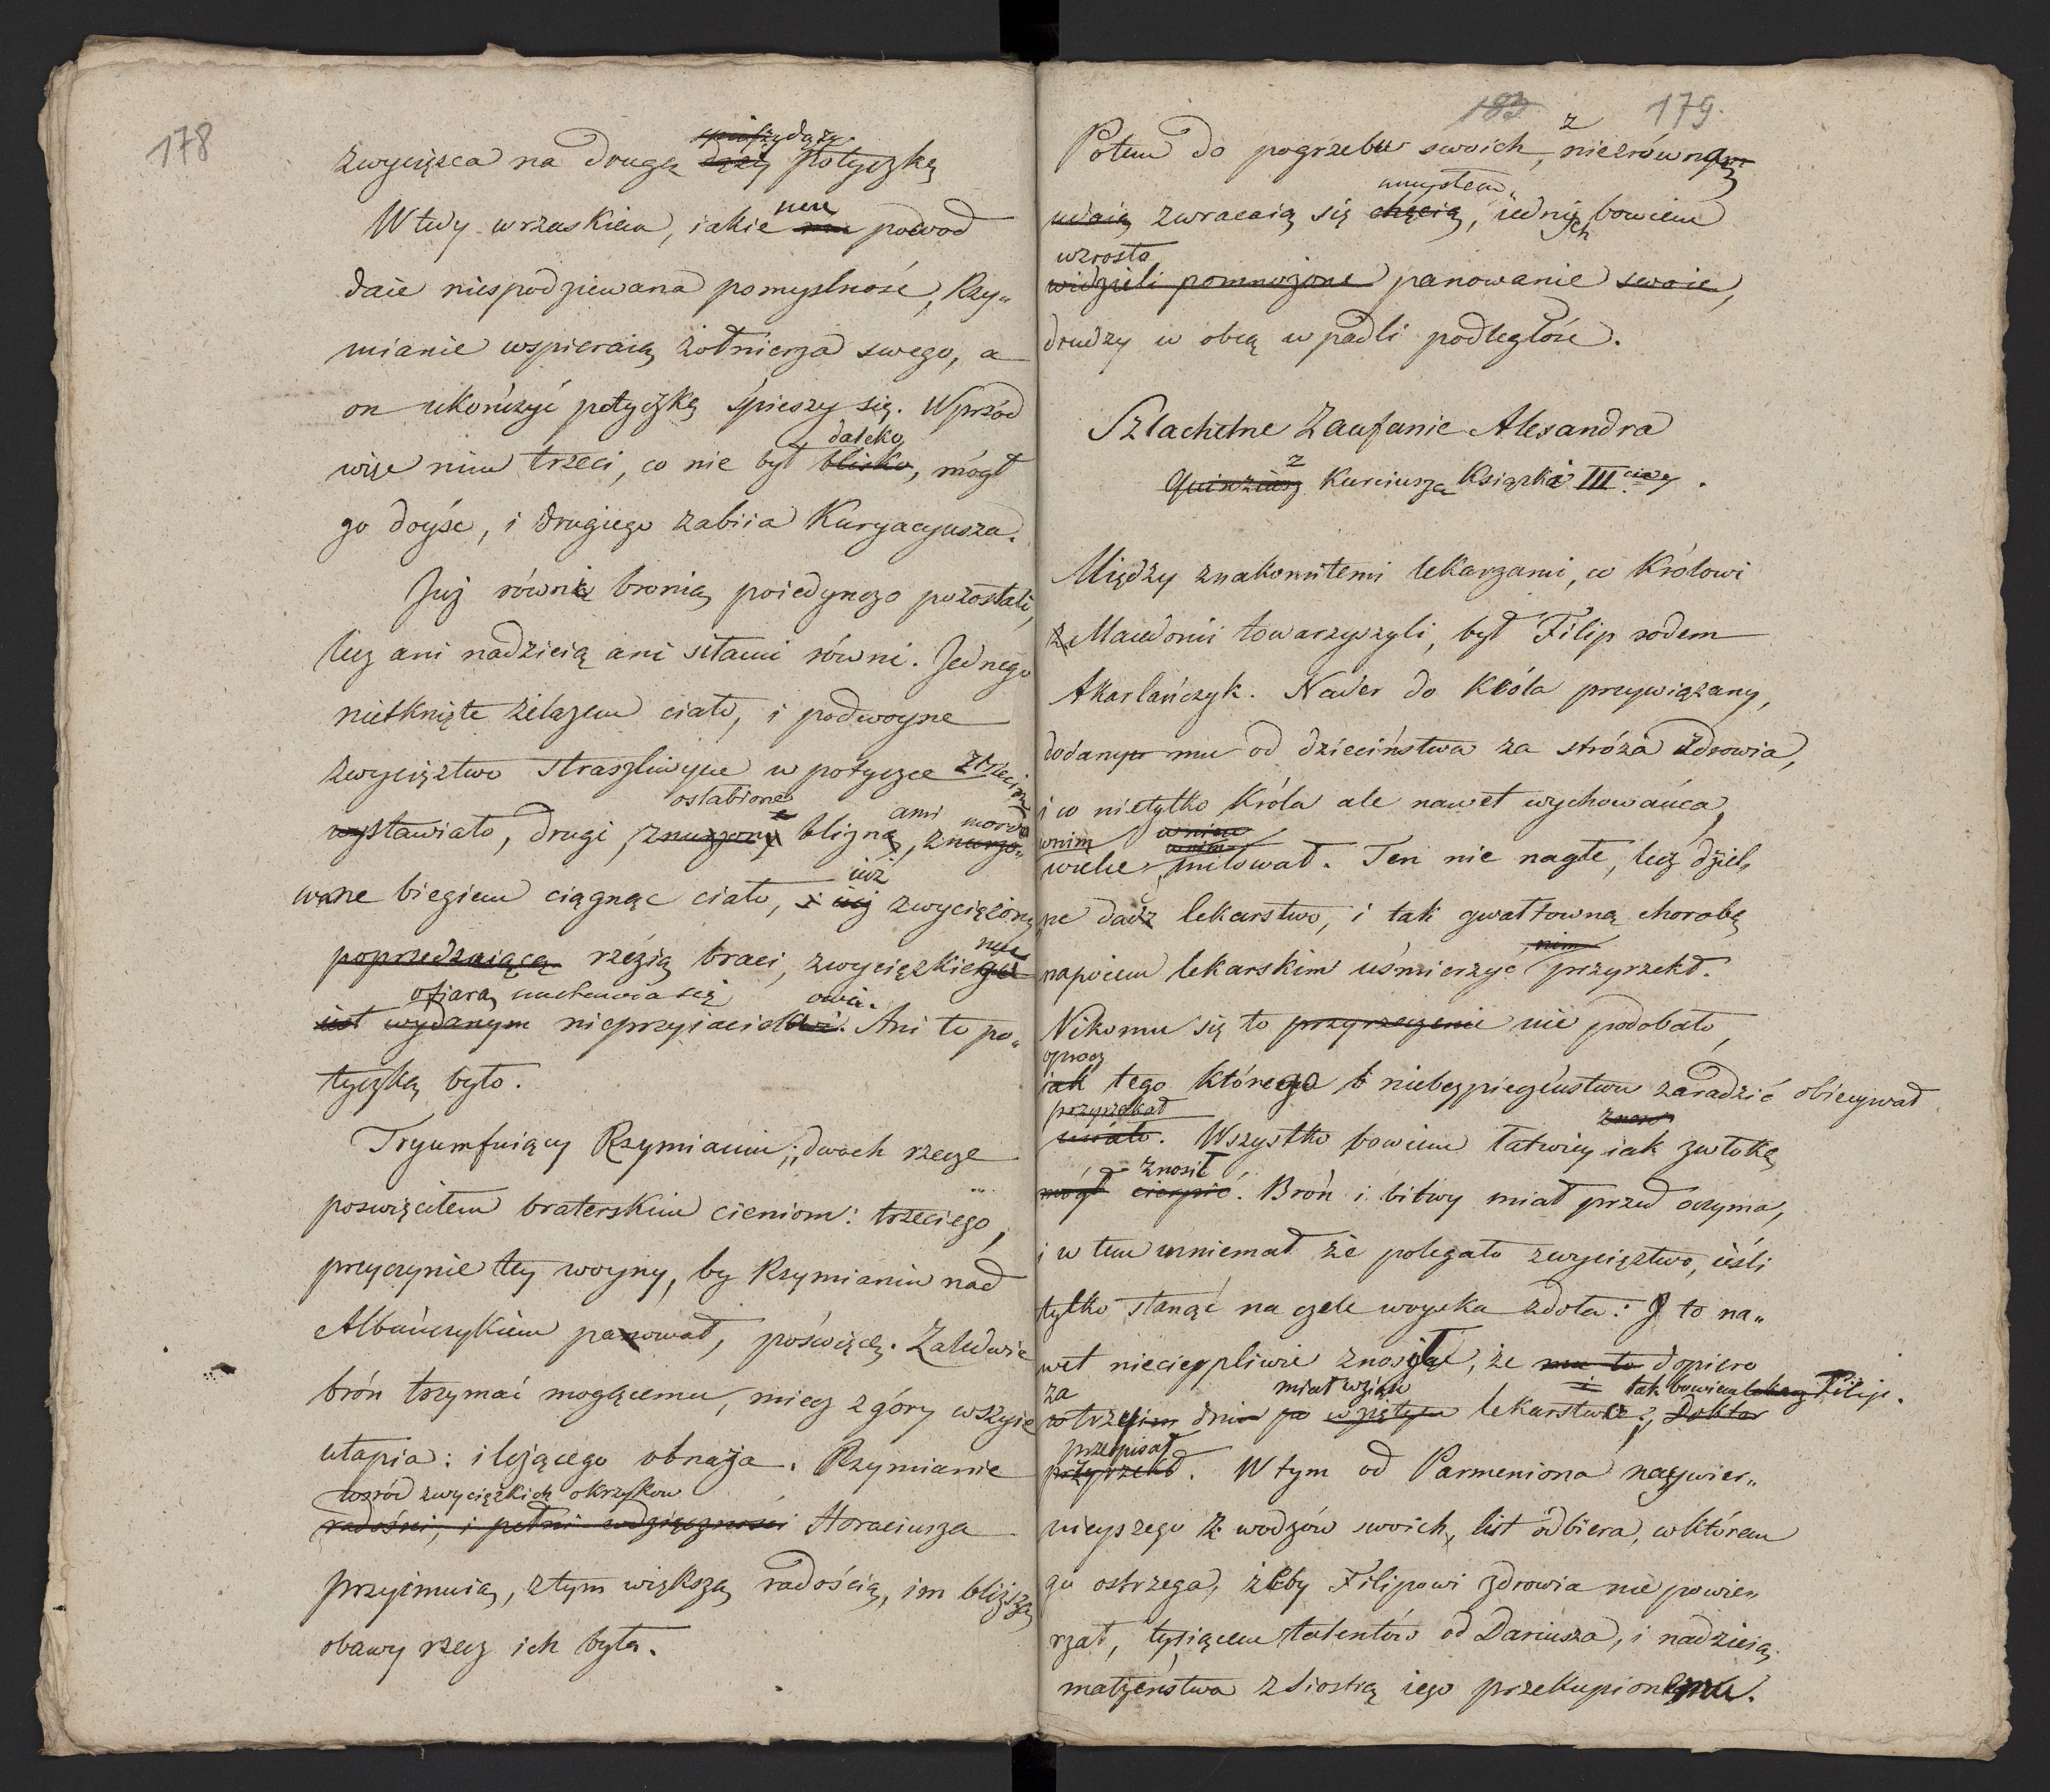 178
spiesząc dąży
zwycięzca na drugą dąży potyczkę
nem
Wtedy wrzaskiem, iakie powod
daie niespodziewana pomyslność, Rzy„
mianie wspieraią żołnierza swego, a
on ukończyć potyczkę śpieszy się. Wprzód
daleko
więc nim trzeci, co nie był blisko, mógł
go doyśc, i drugiego zabiia Kuryacyusza.
Juz równią bronią poiedynczo pozostali,
lecz ani nadzieią ani siłami równi. Jednego
nietknięte żelazem ciało, i podwoyne
zwycięztwo straszliwym w potyczce z trzecim
osłabione ami mordo
wystawiało, drugi, znużony blizną, znurzo„
iuż
wane biegiem ciągnąc ciało, i iuż zwyciężony
poprzedzaiącą rzezią braci, zwycięzkiego
nu
ofiarą owi.
iest wydanym nieprzyiacielowi. Ani to po„
tyczką było.
Tryumfuiący Rzymianin; dwoch rzecze
poswięcitem braterskim cieniom: trzeciego,
przyczynie tey woyny, by Rzymianin nad
Albańczykiem panował, poświęcę. Zaledwie
broń trzymać mogącemu, miecz z góry w szyie
utapia: i leżącego obnaża. Rzymianie
wsród zwycięzkich okrzykow
radości, i pełni wdzięczności Horaciusza
przyimuią, z tym większą radością, im bliższą
obawy rzecz ich była.
183 179.
z
Potem do pogrzebu swoich, nierównym
umysłem,
udaią zwracaią się chęcią, iednych bowiem
wzrosło
widzieli pomnożone panowanie swoie,
drudzy w obcą wpadli podległość.
Szlachetne Zaufanie Alexandra
z
Kurciusza Książki III ciey.
Między znakomitemi lekarzami, co Królowi
z Macedonii towarzyszyli, był Filip rodem
Akarlańczyk. Nader do Króla przywiązany,
dodanym mu od dzieciństwa za stróża zdrowia,
i co nietylko Króla ale nawet wychowańca,
wnim wnim
wnim
wielce miłował. Ten nie nagłe, lecz dziel„
ne dać lekarstwo, i tak gwałtowną chorobę
nim
napoiem lekarskim uśmierzyć przyrzekł.
Nikomu się to przyrzeczenie nie podobało,
oprocz
iak tego którego niebezpieczeństwu zaradzić obiecywał
przyrzekał
miało. Wszystko bowiem łatwiey iak zwłokę
znosił
mógł cierpić. Broń i bitwy miał przed oczyma,
i w tem mniemał że polegało zwycięztwo, ieśli
tylko stanąć na czele woyska zdoła: I to na„
wet niecierpliwie znosił, że mu to dopiero
za miał wziąść i tak bowiem lekarz Filip.
w trzecim dniu po wziętym lekarstwie; Doktor
przepisał
przyrzekł. W tym od Parmeniona naywier„
nieyszego z wodzów swoich, list odbiera, w którem
go ostrzega, żeby Filipowi zdrowia nie powie„
rzał, tysiącem talentów od Dariusza, i nadzieią
małżeństwa z siostrą iego przekupionemu.